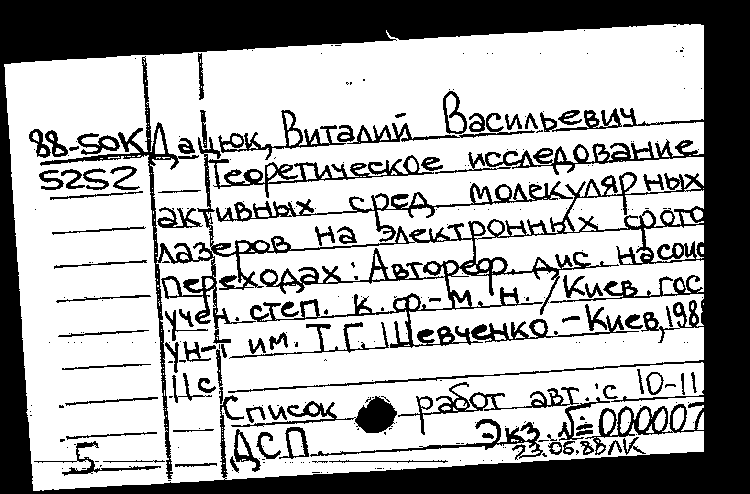 88-50К Дацюк, Виталий Васильевич
5252 Теоретическое исследование
активных сред молекулярных
лазеров на электронных фото
переходах: Автореф. дис. на соис
учен. степ. к.ф.-м.н. / Киев. гос
ун-т им. Т.Г. Шевченко. – Киев, 1988
11 с
Список работ авт.: с. 10-11.
ДСП. Экз. №=000007
5 23.05.88 ЛК